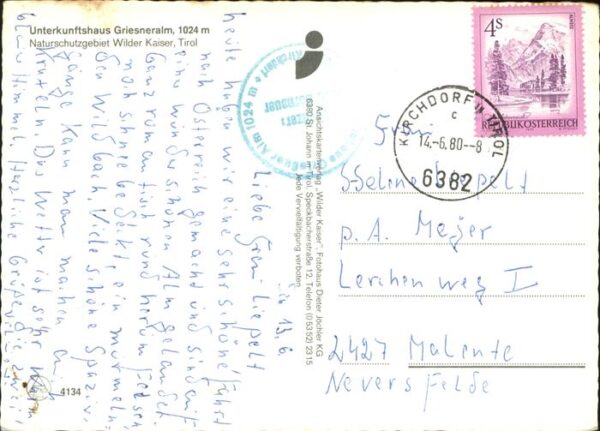 Unterkunftshaus Griesneralm, 1024 m
Naturschutzgebiet Wilder Kaiser, Tirol
d. 13.6.
Liebe Frau Liepelt
heute haben wir eine sehr schöne Fahrt
nach Österreich gemacht und sind auf
einer wunderschönen Alm gelandet.
Ganz romantisch rund herum Felsen
noch schneebedeckt, ein murmeln-
den Wildbach. Viele schöne Spazier-
gänge kann man machen
Das Wetter ist sehr
blau Himmel. Herzliche Grüße
4134
Ansichtskartenverlag „Wilder Kaiser" Fotohaus Dieter Jöchler KG
6380 St. Johann in Tirol, Speckbacherstraße 12, Telefon (05352) 2315
Jede Vervielfältigung verboten
1024 m
4S
REPUBLIK ÖSTERREICH
KIRCHDORF IN TIROL
c
14.-6.80-8
6382
Frau
Liepelt
p. A. Meyer
Lerchenweg I
2427 Malente
Neversfelde